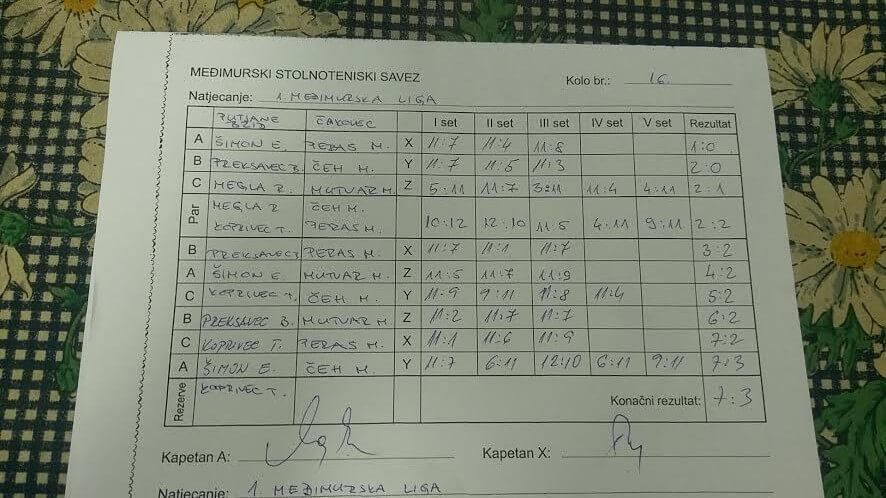 MEĐIMURSKI STOLNOTENISKI SAVEZ
Kolo br.: 16.
Natjecanje: 1. MEĐIMURSKA LIGA
PUTJANE ČAKOVEC I set II set III set IV set V set Rezultat
A ŠIMON E. PERAS M. X 11:7 11:4 11:8 1:0
B PREKSAVEC B. ČEH M. Y 11:7 11:5 11:3 2:0
C MEGLA R. MUTVAR M. Z 5:11 11:7 3:11 11:4 4:11 2:1
Par MEGLA R ČEH M.
KOPRIVEC T. PERAS M. 10:12 12:10 11:5 4:11 9:11 2:2
B PREKSAVEC B PERAS M. X 11:7 11:1 11:7 3:2
A ŠIMON E. MUTVAR M. Z 11:5 11:7 11:9 4:2
C KOPRIVEC T. ČEH M. Y 11:9 9:11 11:8 11:4 5:2
B PREKSAVEC B. MUTVAR M. Z 11:2 11:7 11:7 6:2
C KOPRIVEC T. PERAS M. X 11:1 11:6 11:9 7:2
A ŠIMON E. ČEH M. Y 11:7 6:11 12:10 6:11 9:11 7:3
Rezerve KOPRIVEC T. Konačni rezultat: 7:3
Kapetan A: Kapetan X:
Natjecanje: 1. MEĐIMURSKA LIGA